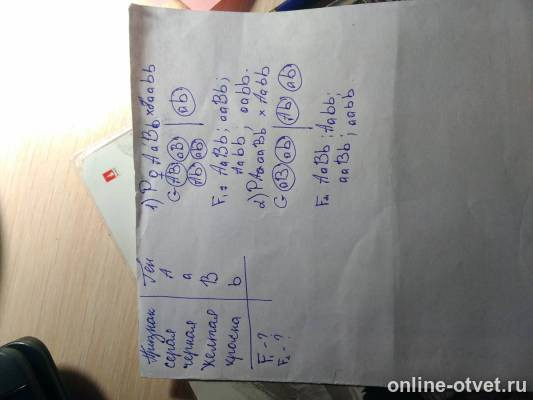 Признак | Ген
серая | A
чёрная | a
желтая | B
красная | b
F₁ - ?
F₂ - ?
1) P ♀ AaBb × ♂ aabb
G AB aB | ab
Ab ab
F₁: AaBb; aaBb;
Aabb; aabb.
2) P aaBb × Aabb
G aB ab | Ab ab
F₂ AaBb; Aabb;
aaBb; aabb
online-otvet.ru